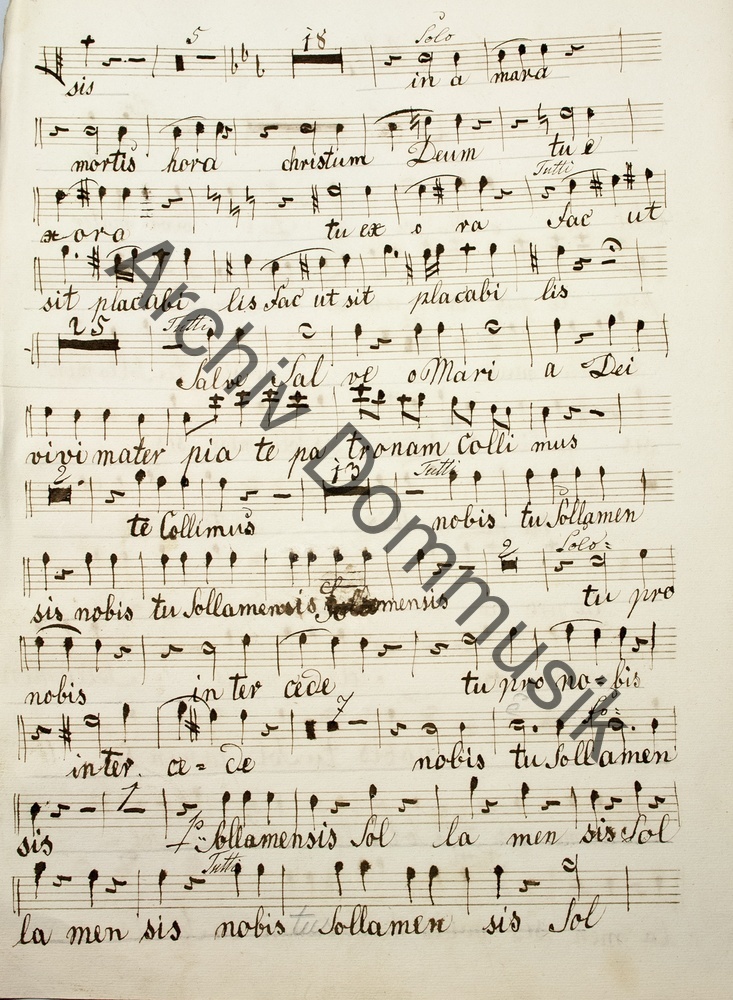 5 18 Solo
sis in a mara
mortis hora christum Deum tu e
Tutti
x ora tu ex o ra fac ut
sit placabi lis fac ut sit placabi lis
25 Tutti
Salve Sal ve o Mari a Dei
vivi mater pia te pa tronam Colli mus
2 13 Tutti
te Collimus nobis tu Sollamen
2 Solo
sis nobis tu Sollamensis mensis tu pro
nobis in ter cede tu pro no=bis
7
inter. ce=de nobis tu Sollamen
1
sis Sollamensis Sol la men sis Sol
Tutti
la men sis nobis tu Sollamen sis Sol
Archiv Dommusik